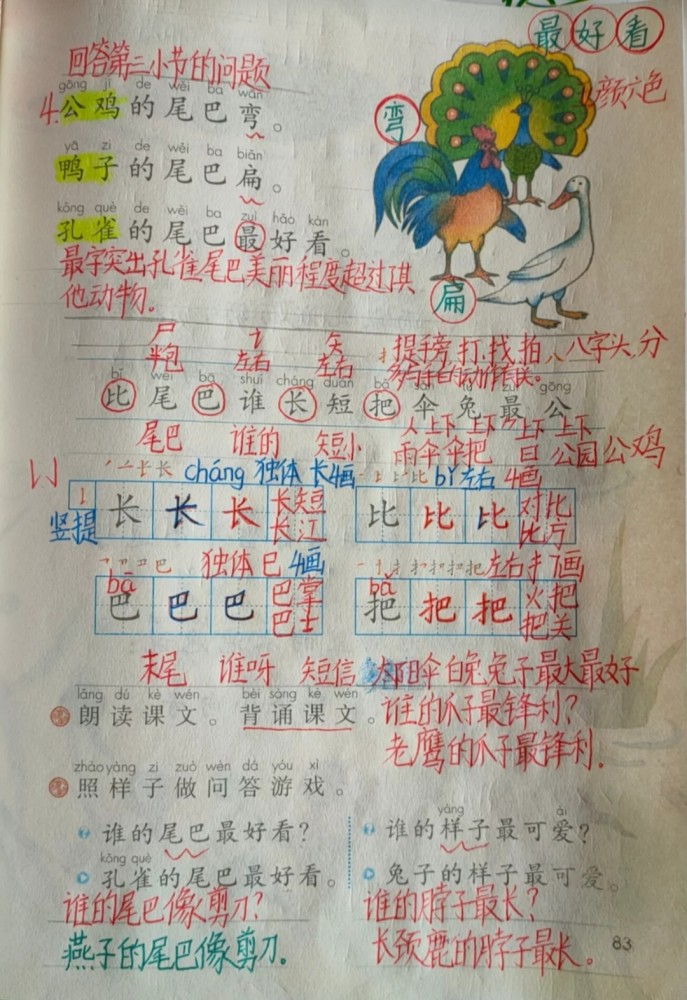 最好看
回答第三小节的问题
gōng jī de wěi ba wān
4.公鸡的尾巴弯。
弯
颜六色
yā zi de wěi ba biǎn
鸭子的尾巴扁。
kǒng què de wěi ba zuì hǎo kàn
孔雀的尾巴最好看。
最字突出孔雀尾巴美丽程度超过其
他动物。
扁
尸 矢
半包 左右 左右
扌提手旁.打.找.拍 八八字头.分
bǐ wěi bā shuí cháng duǎn bǎ sǎn tù zuì gōng
比尾巴谁长短把伞兔最公
人上下 上下 上下
尾巴 谁的 短小 雨伞伞把 日 公园公鸡
cháng 独体 长4画
bǐ左右 4画
竖提
长 长 长 长短
长江
比 比 比 对比
比方
bā
独体 巴 4画
bǎ
左右扌7画
巴 巴 巴 巴掌
巴士
把 把 把 火把
把关
末尾 谁呀 短信 太阳伞白兔兔子最大最好
lǎng dú kè wén bèi sòng kè wén
朗读课文。背诵课文。
谁的爪子最锋利?
老鹰的爪子最锋利.
zhào yàng zi zuò wèn dá yóu xì
照样子做问答游戏。
谁的尾巴最好看?
kǒng què
孔雀的尾巴最好看。
谁的尾巴像剪刀?
燕子的尾巴像剪刀.
yàng ài
谁的样子最可爱?
兔子的样子最可爱。
谁的脖子最长?
长颈鹿的脖子最长。
83